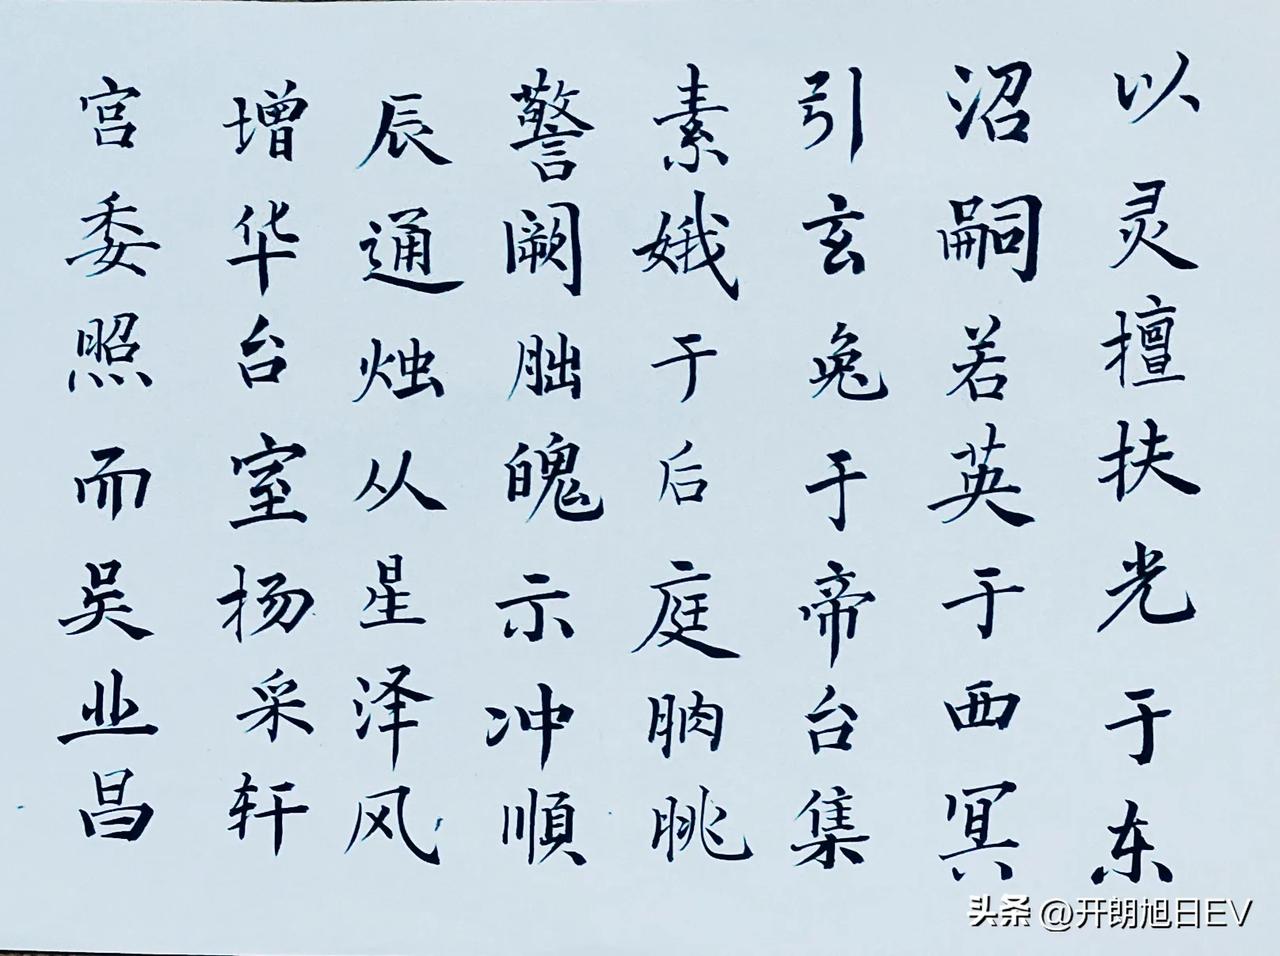 以灵擅扶光于东
沼嗣若英于西冥
引玄兔于帝台集
素娥于后庭朒朓
警阙朏魄示冲順
辰通烛从星泽风
增华台室扬采轩
宫委照而吴业昌
头条 @开朗旭日EV